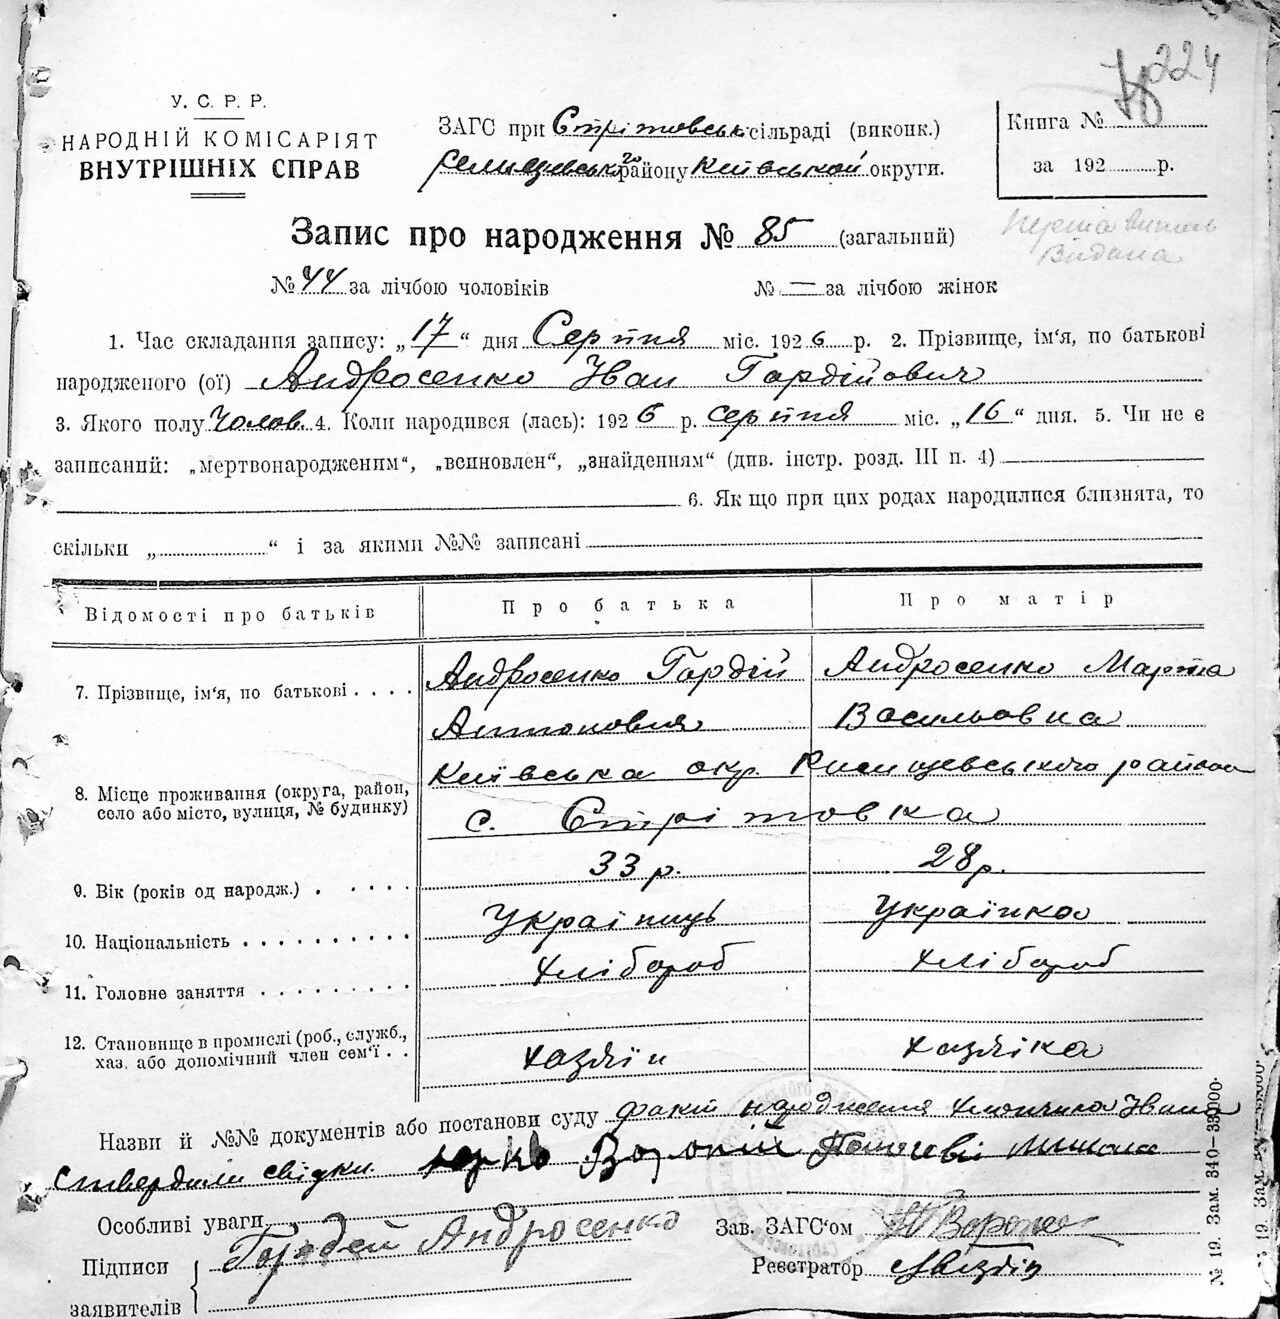 224
У. С. Р. Р.
НАРОДНІЙ КОМІСАРІЯТ
ВНУТРІШНІХ СПРАВ
ЗАГС при Стрітовськ сільраді (виконк.)
району Київської округи.
Книга №
за 192 р.
Запис про народження № 85 (загальний)
Видана
№ 44 за лічбою чоловіків № — за лічбою жінок
1. Час складання запису: „17“ дня Серпня міс. 1926 р. 2. Прізвище, ім‘я, по батькові
народженого (ої) Андросенко Іван Гордійович
3. Якого полу Чолов. 4. Коли народився (лась): 1926 р. серпня міс. „16“ дня. 5. Чи не є
записаний: „мертвонародженим“, „всиновлен“, „знайденням“ (див. інстр. розд. III п. 4)
6. Як що при цих родах народилися близнята, то
скільки „ “ і за якими №№ записані
Відомості про батьків Про батька Про матір
7. Прізвище, ім‘я, по батькові . . . . Андросенко Гордій Андросенко Марта
Антонович Васильовна
8. Місце проживання (округа, район, Київська окр. района
село або місто, вулиця, № будинку) с. Стрітовка
9. Вік (років од народж.) . . . . . 33 р. 28 р.
10. Національність . . . . . . . . . . Українець Українка
11. Головне заняття . . . . . . . . . хлібороб хлібороб
12. Становище в промислі (роб., служб.,
хаз. або допомічний член сем‘ї . . хазяїн хазяїка
Назви й №№ документів або постанови суду факт народження хлопчика Івана
ствердили свідки
Особливі уваги
Підписи Гордей Андросенко Зав. ЗАГС‘ом
заявителів Реєстратор
№ 19. Зам. 340—35000.